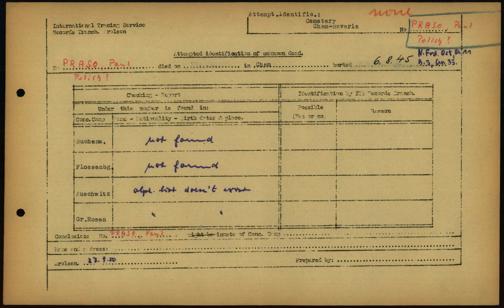 none
International Tracing Service
Records Branch, Arolsen
Attempt.identific.:
Cemetery
Cham-Bavaria
No
PRASO, Paul
Polish?
Attempted identification of unknown dead.
PRASO Paul died on in Cham buried 6.8.45
Polish?
Checking - Report
Under this number is found in:
Identification by ITS Records Branch.
Conc.Camp Name - Nationality - Birth date & place.
Possible
Yes or no.
Buchenw. not found
Flossenbg. not found
Auschwitz alph. list doesn't exist
Gr.Rosen " "
Conclusion: No. PRASO Paul inmate of Conc. Camp
Arolsen, 27.9.50 Prepared by: